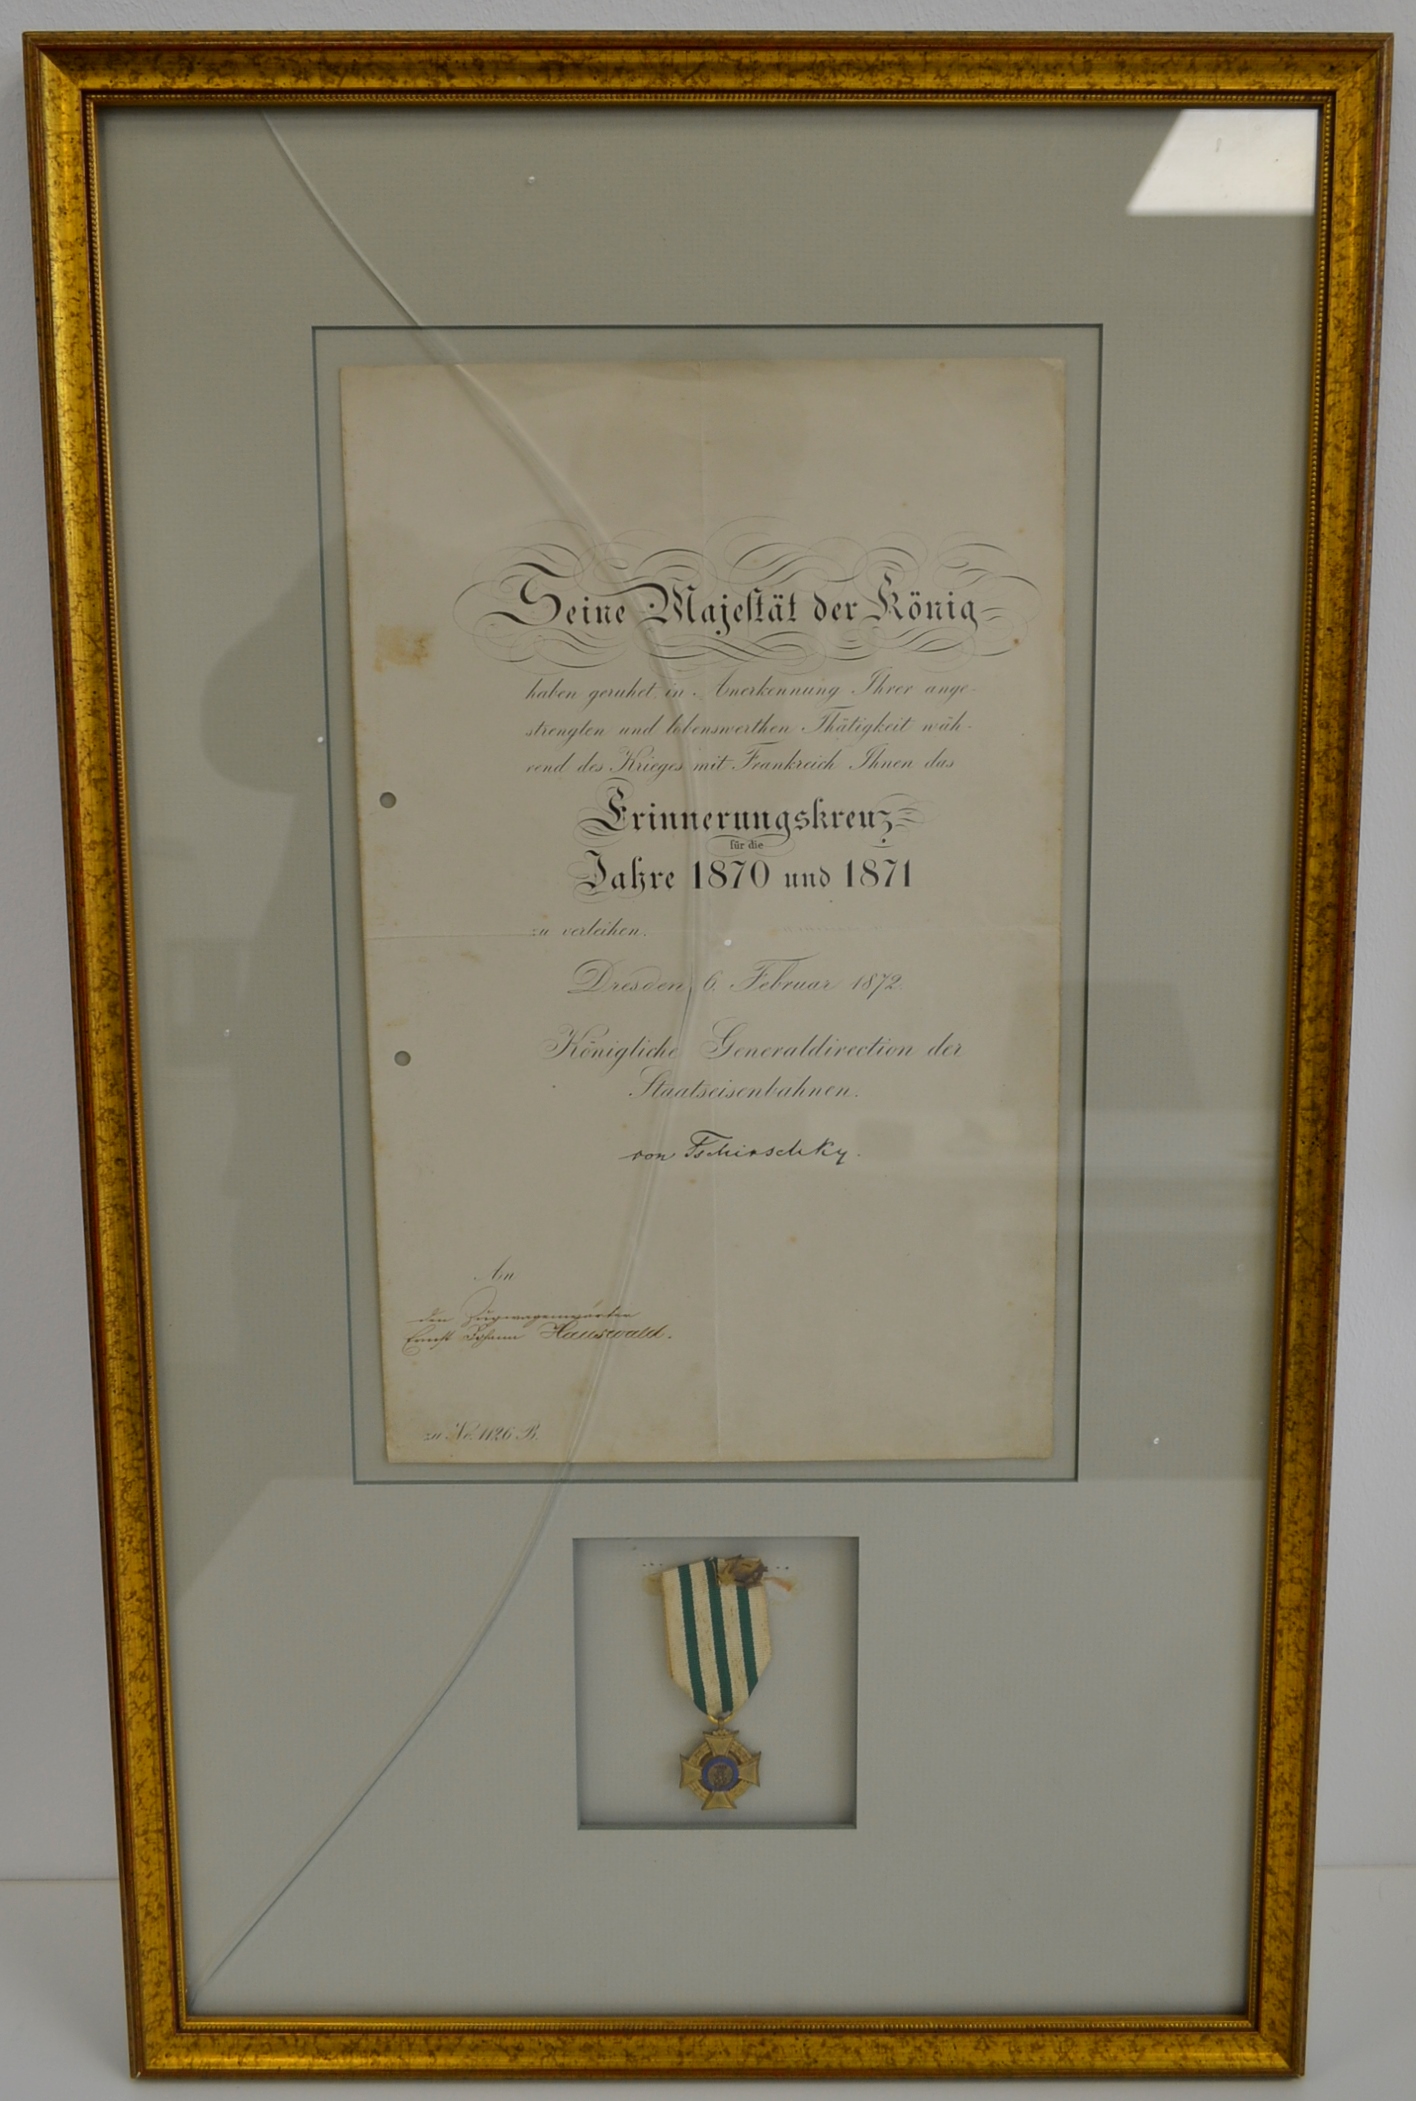 Seine Majestät der König
haben geruhet, in Anerkennung Ihrer ange-
strengten und lobenswerthen Thätigkeit wäh-
rend des Krieges mit Frankreich Ihnen das
Erinnerungskreuz
für die
Jahre 1870 und 1871
zu verleihen.
Dresden, 6. Februar 1872.
Königliche Generaldirection der
Staatseisenbahnen.
von Tschirschky.
An
den Zugwagenwärter
Ernst Johann Hauswald.
zu No. 1126 B.